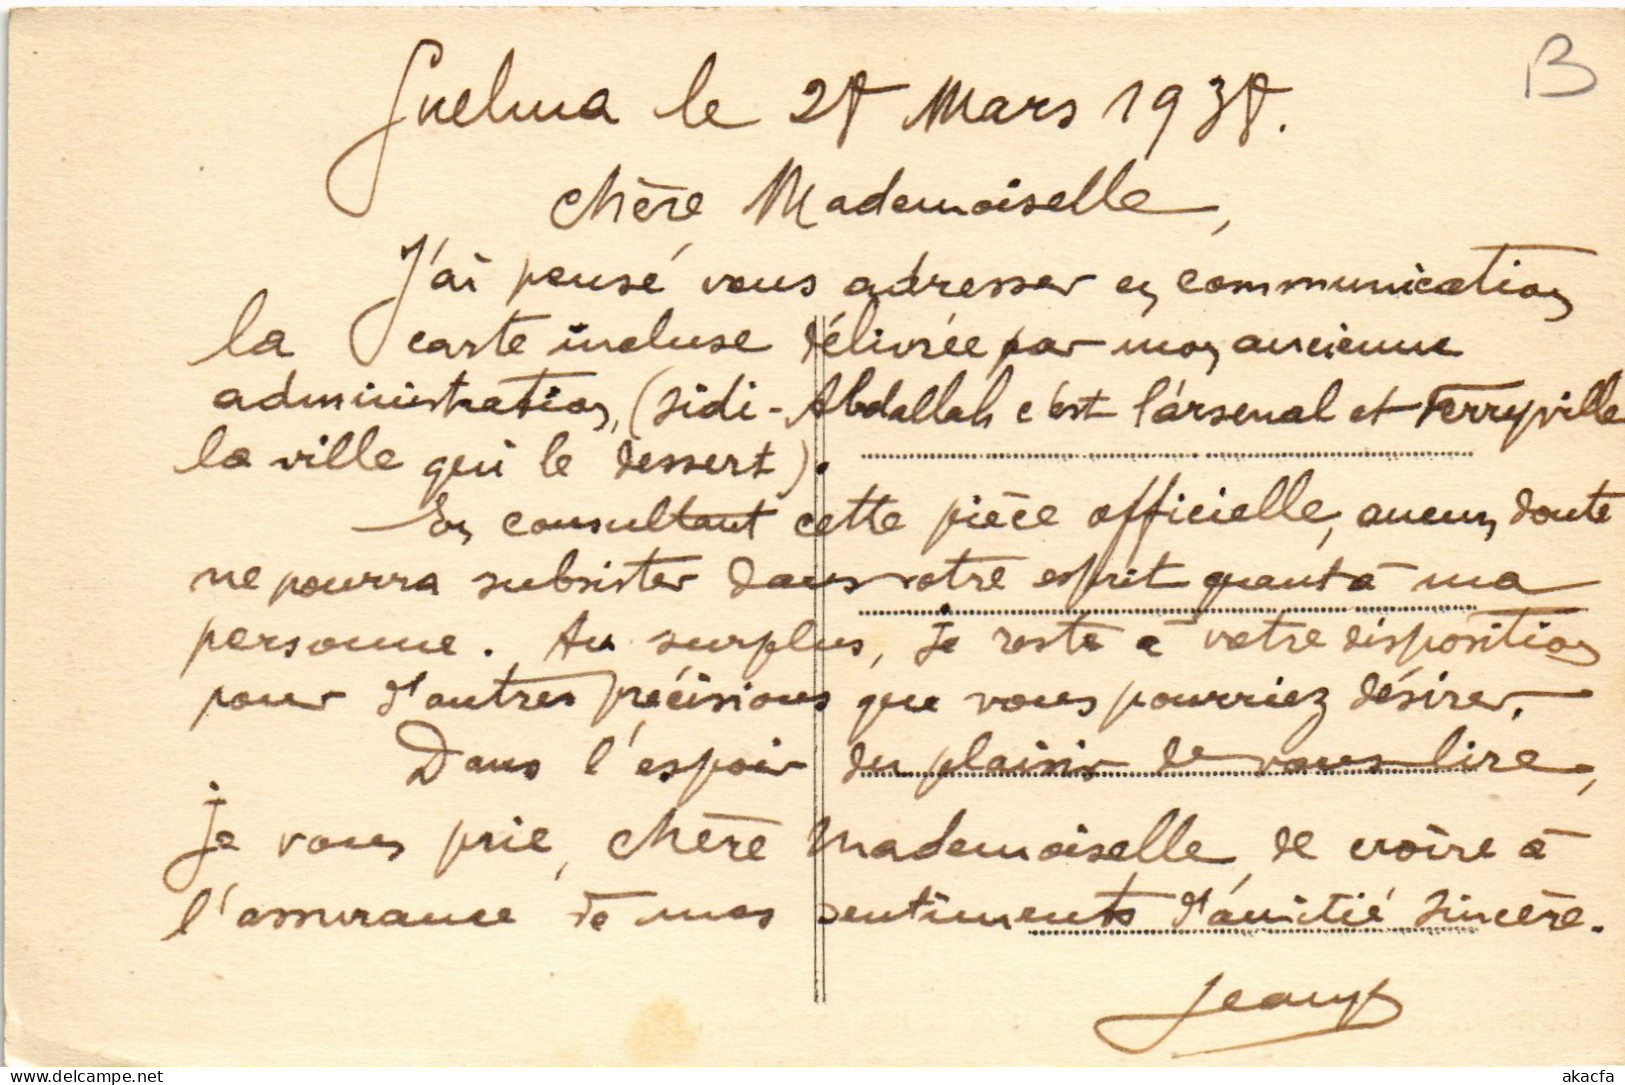 B
Guelma le 28 Mars 1938.
Chère Mademoiselle,
J'ai pensé vous adresser en communication
la carte incluse délivrée par mon ancienne
administration, (Sidi-Abdallah c'est l'arsenal et Ferryville
la ville qui le dessert).
En consultant cette pièce officielle, aucun doute
ne pourra subsister dans votre esprit quant à ma
personne. Au surplus, je reste à votre disposition
pour d'autres précisions que vous pourriez désirer.
Dans l'espoir du plaisir de vous lire,
je vous prie, chère Mademoiselle, de croire à
l'assurance de mes sentiments d'amitié sincère.
akacfa